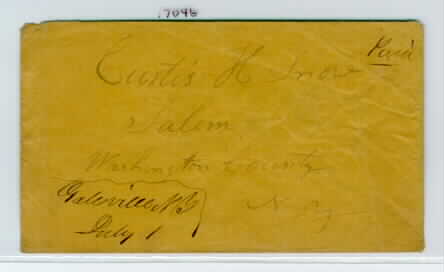 7046
Paid
Curtis H Snow
Salem
Washington County
N. Y.
Galesville N Y
July 1